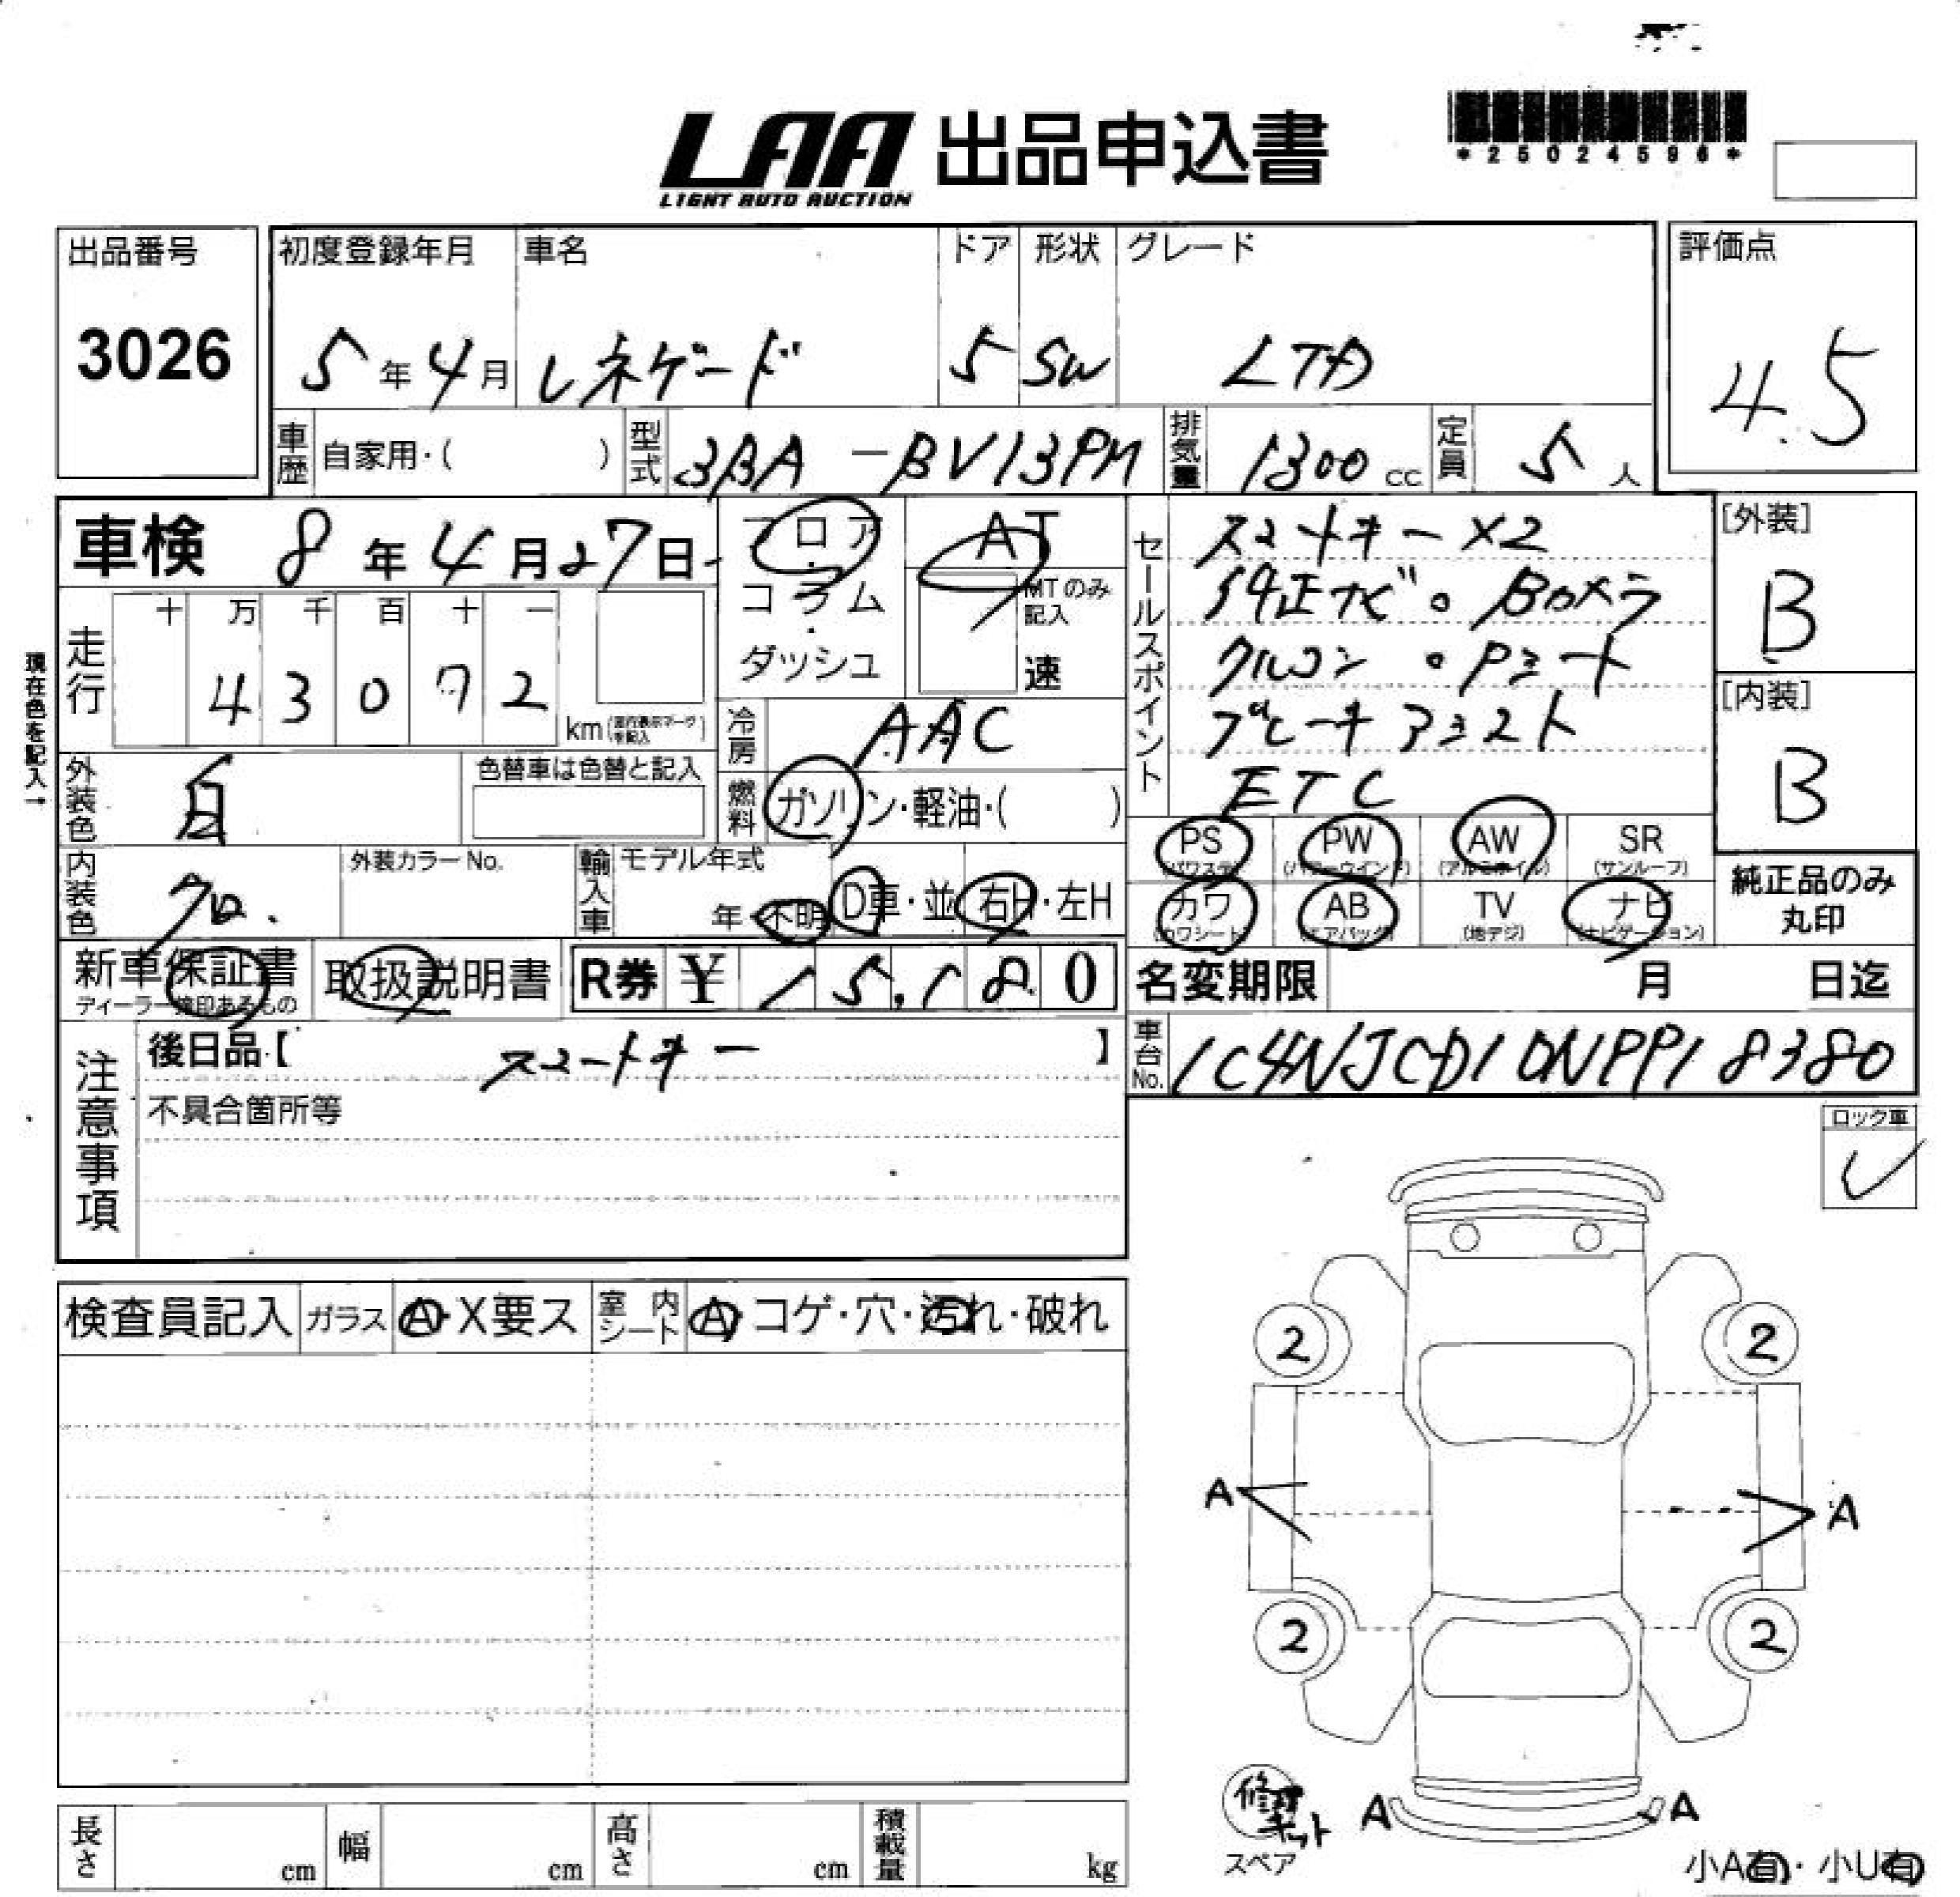 LAA 出品申込書
LIGHT AUTO AUCTION
*25024596*
出品番号 初度登録年月 車名 ドア 形状 グレード 評価点
3026 5年4月 レネゲード 5 SW LTD 4.5
車歴 自家用・( ) 型式 3BA-BV13PM 排気量 1300cc 定員 5人
車検 8年4月27日
フロア
コラム
ダッシュ
AT
MTのみ記入
速
セールスポイント
スマートキーX2
純正ナビ。Bカメラ
クルコン。Pシート
ブレーキアシスト
ETC
[外装]
B
[内装]
B
現在色を記入→
走行 十 万 千 百 十 一
43072
km(走行表示マークを記入)
冷房 AAC
外装色 白 色替車は色替と記入
燃料 ガソリン・軽油・( )
内装色 クロ. 外装カラーNo. 輸入車 モデル年式
年・不明 D車・並 右H・左H
PS (パワステ) PW (パワーウインド) AW (アルミホイル) SR (サンルーフ)
カワ (カワシート) AB (エアバッグ) TV (地デジ) ナビ (ナビゲーション)
純正品のみ
丸印
新車保証書 取扱説明書 R券 ¥15,180
ディーラー捺印あるもの
名変期限 月 日迄
車台No. 1C4NJCD10NPP18380
注意事項
後日品【 スマートキー 】
不具合箇所等
ロック車
✓
検査員記入 ガラス A・X要ス 室内シート A・コゲ・穴・汚れ・破れ
2 2
A A
2 2
A A
修理キット
スペア
小A有・小U有
長さ cm 幅 cm 高さ cm 積載量 kg